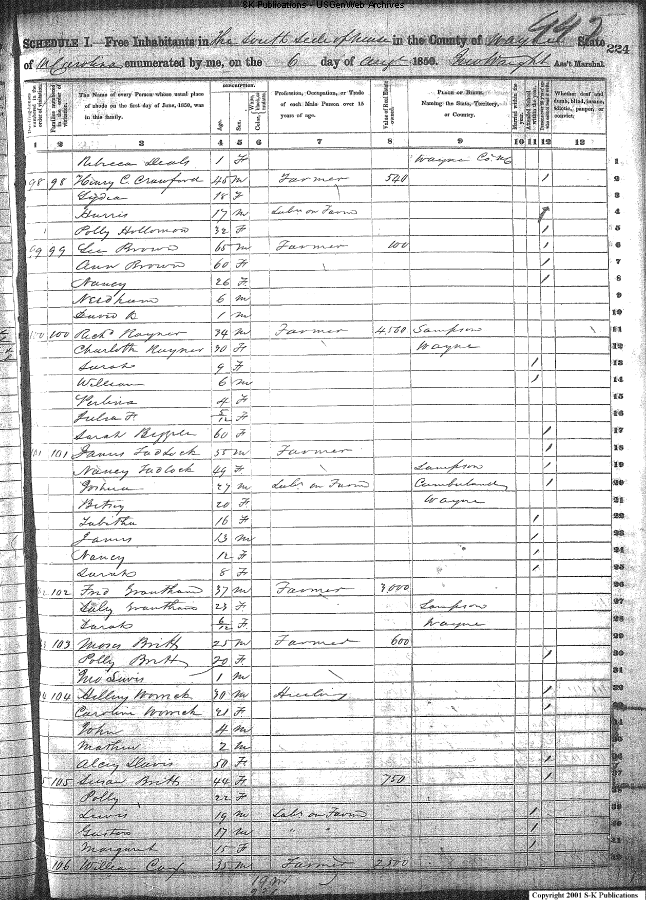 SK Publications - USGenWeb Archives
442
SCHEDULE I.—Free Inhabitants in The South Side of neuse in the County of Wayne State 224
of N Carolina enumerated by me, on the 6 day of Augt 1850. Jno Wright Ass't Marshal.
DESCRIPTION.
The Name of every Person whose usual place of abode on the first day of June, 1850, was in this family.
Age. Sex. Color,
Profession, Occupation, or Trade of each Male Person over 15 years of age.
Value of Real Estate owned.
PLACE OF BIRTH. Naming the State, Territory, or Country.
Married within the year. Attended School within the year.
Whether deaf and dumb, blind, insane, idiotic, pauper, or convict.
1 2 3 4 5 6 7 8 9 10 11 12 13
Rebecca Deals 1 F Wayne Co. NC 1
98 98 Henry C. Crawford 45 M Farmer 540 / 2
Lydia 18 F 3
Harris 17 M Labr on Farm / 4
Polly Hollomon 32 F / 5
99 99 Brown 65 M Farmer 100 / 6
Ann Brown 60 F / 7
Nancy 26 F / 8
Needham 6 M 9
David D. 1 M 10
100 100 Richd Rayner 34 M Farmer 4,560 Sampson 11
Charlotte Rayner 30 F Wayne 12
Sarah 9 F / 13
William 6 M / 14
Perlina 4 F 15
Julia F. 5/12 F 16
Sarah 60 F / 17
101 101 James Tadlock 55 M Farmer / 18
Nancy Tadlock 49 F Sampson / 19
Joshua 27 M Labr on Farm Cumberland / 20
Betsy 20 F Wayne 21
Tabitha 16 F / 22
James 13 M / 23
Nancy 12 F / 24
Sarah 8 F / 25
102 Fred Grantham 37 M Farmer 3,000 26
Grantham 23 F Sampson 27
Sarah 6/12 F Wayne 28
103 Moses Britt 25 M Farmer 600 29
Polly Britt 20 F / 30
Jno Lewis 1 M 31
104 Womack 30 M /
Caroline Womack 21 F /
John 4 M
2 M
Alcey Davis 50 F /
105 Susan Britt 44 F 750 /
Polly 22 F
Lewis 19 M Labr on Farm /
Guston 17 M " " /
Margaret 15 F /
106 William Cox 35 M Farmer 2,500
Copyright 2001 S-K Publications